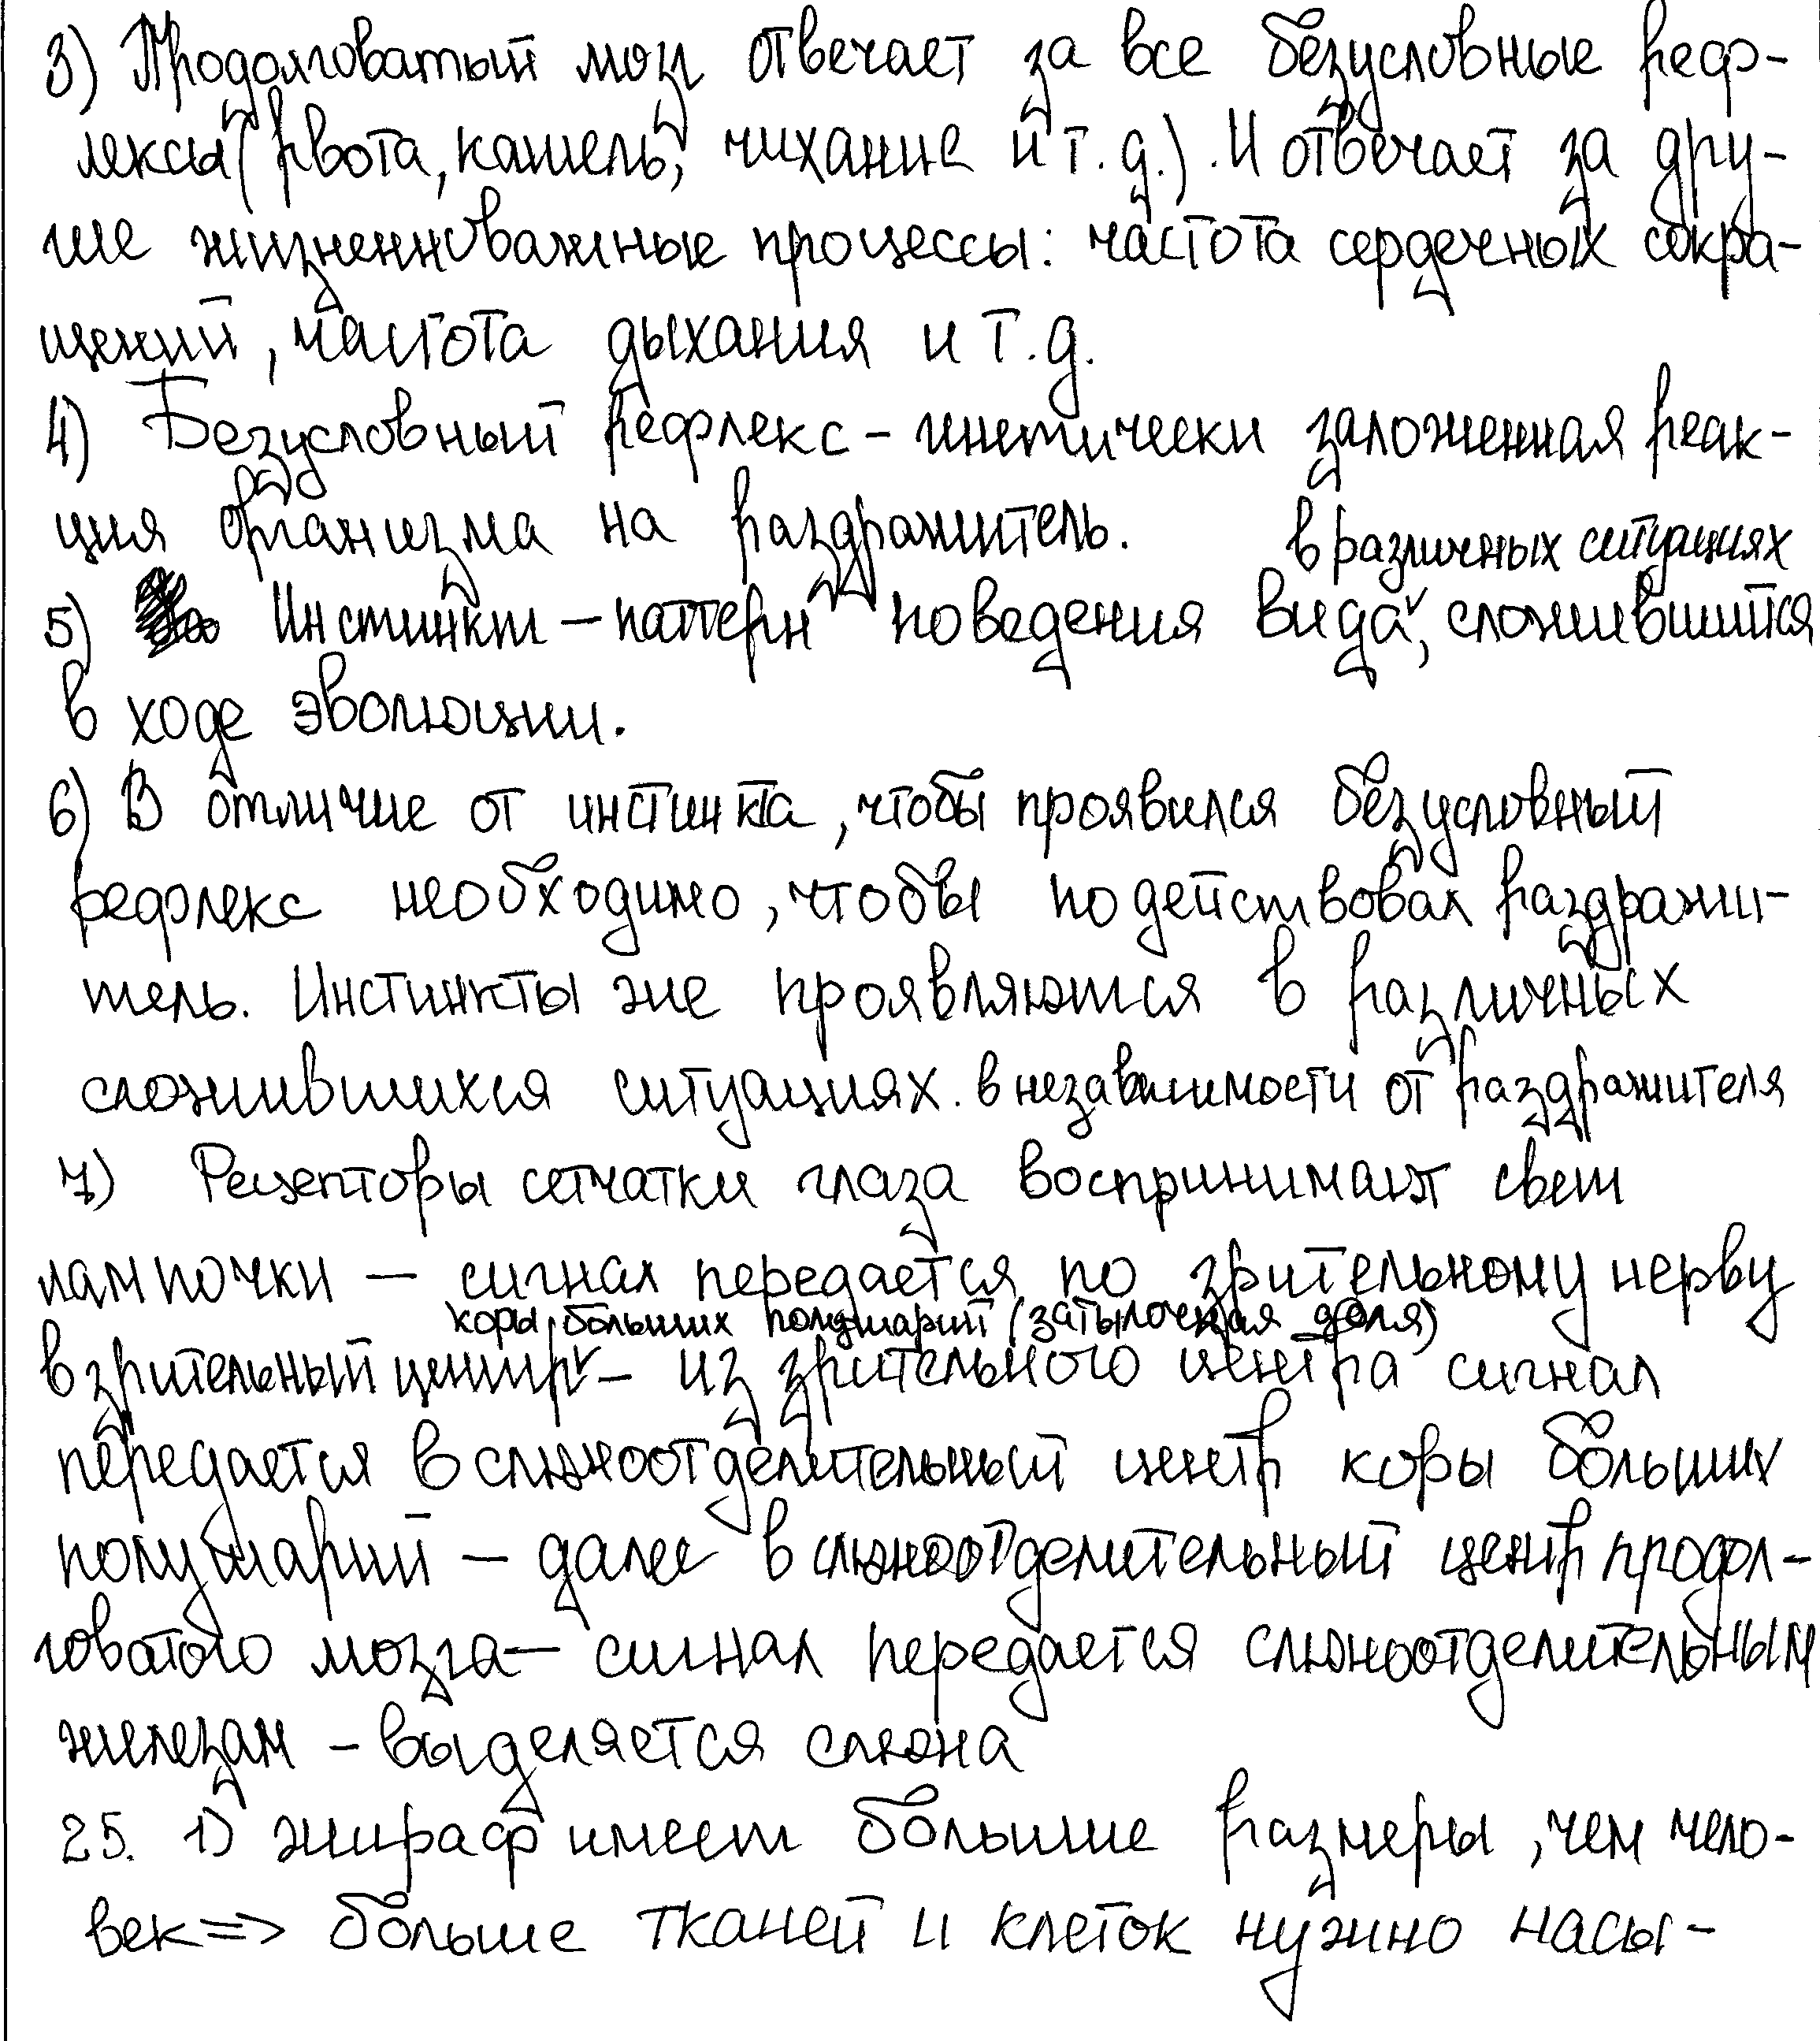 3) Продолговатый мозг отвечает за все безусловные реф-
лексы (рвота, кашель, чихание и т.д.). И отвечает за дру-
гие жизненноважные процессы: частота сердечных сокра-
щений, частота дыхания и т.д.
4) Безусловный рефлекс – генетически заложенная реак-
ция организма на раздражитель.
в различных ситуациях
5) Инстинкт – паттерн поведения вида, сложившийся
в ходе эволюции.
6) В отличие от инстинкта, чтобы проявился безусловный
рефлекс необходимо, чтобы подействовал раздражи-
тель. Инстинкты же проявляются в различных
сложившихся ситуациях. в независимости от раздражителя
7) Рецепторы сетчатки глаза воспринимают свет
лампочки – сигнал передается по зрительному нерву
коры больших полушарий (затылочная доля)
в зрительный центр – из зрительного центра сигнал
передается в слюноотделительный центр коры больших
полушарий – далее в слюноотделительный центр продол-
говатого мозга – сигнал передается слюноотделительным
железам – выделяется слюна
25. 1) жираф имеет большие размеры, чем чело-
век => больше тканей и клеток нужно насы-